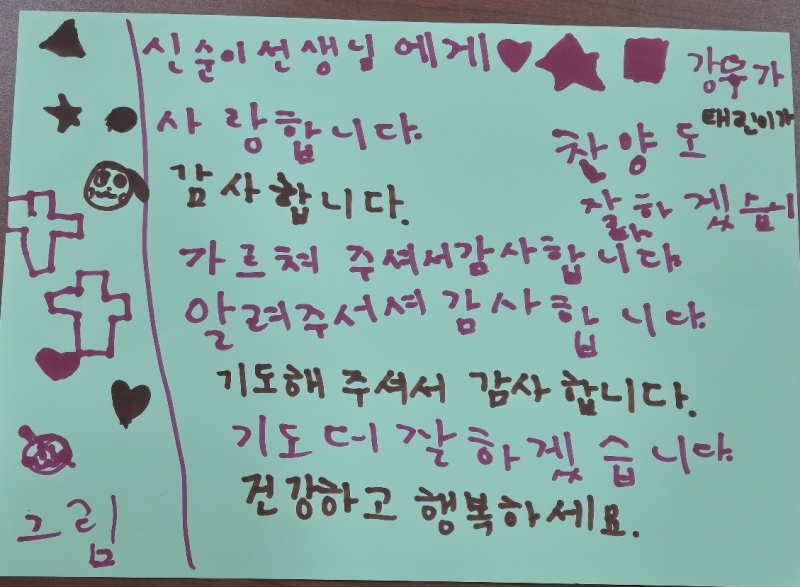 신술이선생님에게
강우가
태린이가
사랑합니다.
감사합니다.
찬양도
잘하겠습니
가르쳐 주셔서감사합니다.
알려주서셔 감사합니다.
기도해 주셔서 감사합니다.
기도더잘하겠습니다.
건강하고 행복하세요.
그림